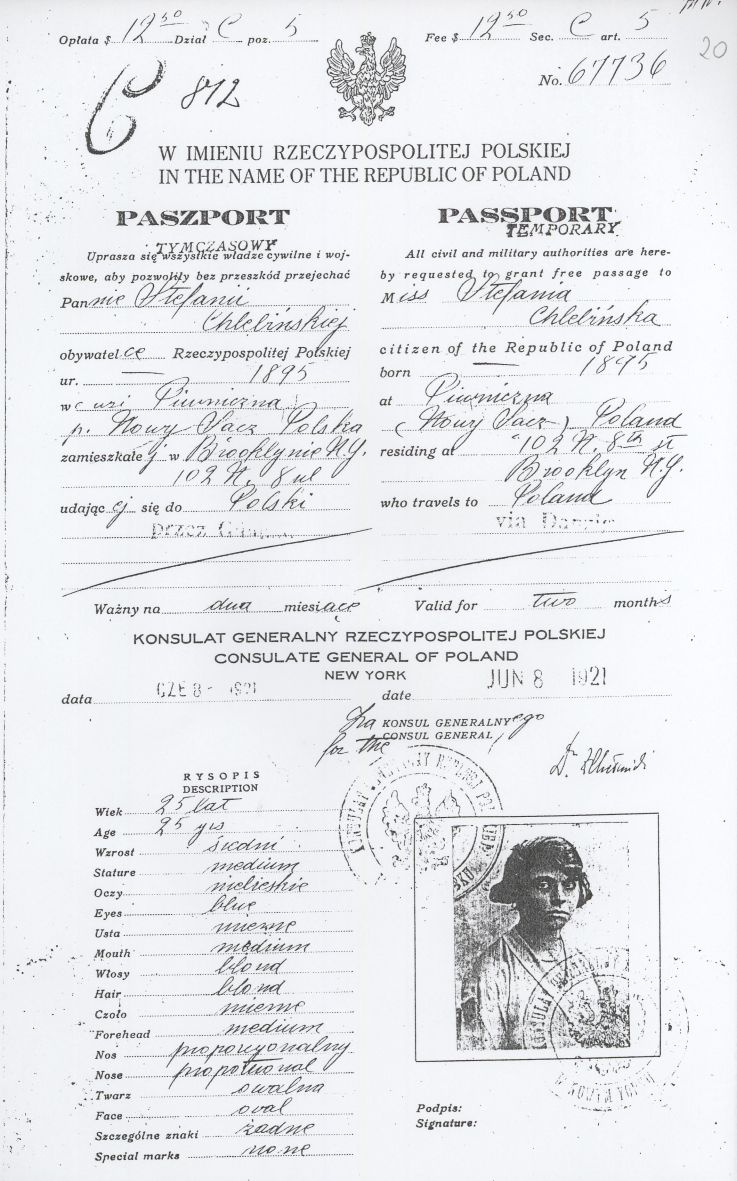 Opłata $ 12 50 Dział C poz. 5
Fee $ 12 50 Sec. C art. 5
20
No. 67736
C 872
W IMIENIU RZECZYPOSPOLITEJ POLSKIEJ
IN THE NAME OF THE REPUBLIC OF POLAND
PASZPORT
TYMCZASOWY
Uprasza się wszystkie władze cywilne i woj-
skowe, aby pozwoliły bez przeszkód przejechać
Pannie Stefanii
Chlebińskiej
obywatelce Rzeczypospolitej Polskiej
ur. — 1895
w Piwniczna
p. Nowy Sącz Polska
zamieszkałej w Brooklynie N.Y.
102 N. 8 ul
udającej się do Polski
przez
Ważny na dwa miesiące
PASSPORT
TEMPORARY
All civil and military authorities are here-
by requested to grant free passage to
Miss Stefania
Chlebińska
citizen of the Republic of Poland
born — 1895
at Piwniczna
(Nowy Sącz) Poland
residing at 102 N. 8th st
Brooklyn N.Y.
who travels to Poland
via Danzig
Valid for two months
KONSULAT GENERALNY RZECZYPOSPOLITEJ POLSKIEJ
CONSULATE GENERAL OF POLAND
NEW YORK
data CZE 8 - 1921
date JUN 8 1921
Za KONSUL GENERALNYego
for the CONSUL GENERAL
Dr.
RYSOPIS
DESCRIPTION
Wiek 25 lat
Age 25 yrs
Wzrost średni
Stature medium
Oczy niebieskie
Eyes blue
Usta mierne
Mouth medium
Włosy blond
Hair blond
Czoło mierne
Forehead medium
Nos proporcyonalny
Nose proportional
Twarz owalna
Face oval
Szczególne znaki żadne
Special marks none
Podpis:
Signature: